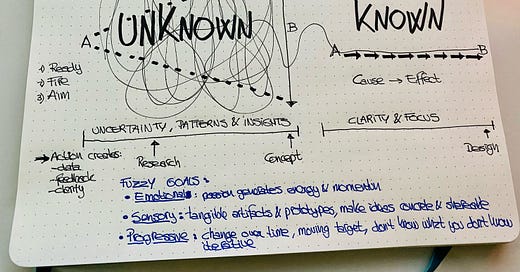 UNKNOWN
KNOWN
A
B
A
B
1) Ready
2) Fire
3) Aim
Cause → Effect
UNCERTAINTY, PATTERNS & INSIGHTS
CLARITY & FOCUS
→ Action creates:
- data
- feedback
- clarity
Research
Concept
Design
FUZZY GOALS:
• Emotional: passion generates energy & momentum
• Sensory: tangible artifacts & prototypes, make ideas concrete & shareable
• Progressive: change over time, moving target, don't know what you don't know
iterative